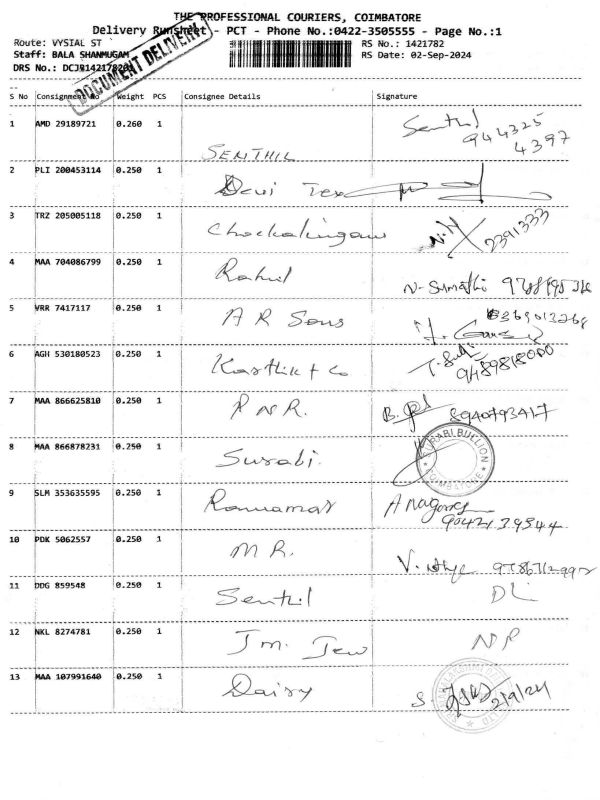 THE PROFESSIONAL COURIERS, COIMBATORE
Delivery Runsheet - PCT - Phone No.:0422-3505555 - Page No.:1
Route: VYSIAL ST
RS No.: 1421782
Staff: BALA SHANMUGAM
RS Date: 02-Sep-2024
DRS No.: DCJ
DOCUMENT DELIVERY
S No Consignment No Weight PCS Consignee Details Signature
1 AMD 29189721 0.260 1 SENTHIL Senthil 944325
4397
2 PLI 200453114 0.250 1 Devi Tex
3 TRZ 205005118 0.250 1 Chockalingam 2391333
4 MAA 704086799 0.250 1 Rahul N. Sumathi
5 VRR 7417117 0.250 1 A R Sons
6 AGH 530180523 0.250 1 Karthik + Co
7 MAA 866625810 0.250 1 R N R. B. 8940793417
8 MAA 866878231 0.250 1 Surabi. SURABI BULLION COIMBATORE
9 SLM 353635595 0.250 1
10 PDK 5062557 0.250 1 M R.
11 DDG 859548 0.250 1 Senthil DL
12 NKL 8274781 0.250 1 Jm. Jew NP
13 MAA 107991640 0.250 1 Daisy S. 2/9/24